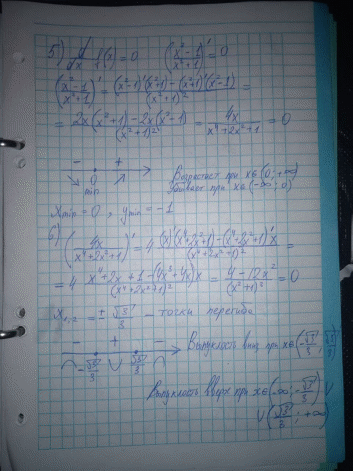 5) d/dx f(x) = 0 ((x²-1)/(x²+1))' = 0
((x²-1)/(x²+1))' = ((x²-1)'(x²+1) - (x²+1)'(x²-1))/(x²+1)² =
= (2x(x²+1) - 2x(x²-1))/(x²+1)² = 4x/(x⁴+2x²+1) = 0
- +
0
min
Возрастает при x∈(0; +∞)
Убывает при x∈(-∞; 0)
x min = 0, y min = -1
6) (4x/(x⁴+2x²+1))' = 4 ((x)'(x⁴+2x²+1) - (x⁴+2x²+1)'x)/(x⁴+2x²+1)² =
= 4 (x⁴+2x+1-(4x³+4x)x)/(x⁴+2x²+1)² = (4-12x²)/(x²+1)³ = 0
x₁,₂ = ± √3/3 - точки перегиба
- + -
-√3/3 √3/3
Выпуклость вниз при x∈(-√3/3; √3/3)
Выпуклость вверх при x∈(-∞; -√3/3) ∪
∪ (√3/3; +∞)